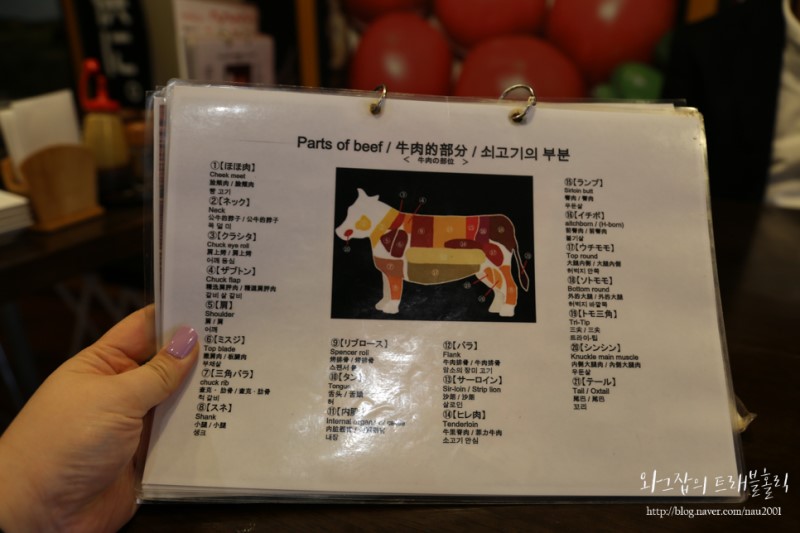 Parts of beef / 牛肉的部分 / 쇠고기의 부분
< 牛肉の部位 >
①【ほほ肉】
Cheek meet
臉頰肉 / 脸颊肉
뺨 고기
②【ネック】
Neck
公牛的脖子 / 公牛的脖子
목 덜 미
③【クラシタ】
Chuck eye roll
肩上烤 / 肩上烤
어깨 등심
④【ザブトン】
Chuck flap
갈비 살 갈비
⑤【肩】
Shoulder
肩 / 肩
어깨
⑥【ミスジ】
Top blade
부채살
⑦【三角バラ】
chuck rib
척 갈비
⑧【スネ】
Shank
小腿 / 小腿
생크
⑨【リブロース】
Spencer roll
스펜서 롤
⑩【タン】
Tongue
舌头 / 舌頭
혀
⑪【内臓】
Internal organ
내장
⑫【バラ】
Flank
牛肉排骨 / 牛肉排骨
암소의 장미 고기
⑬【サーロイン】
Sir-loin / Strip lion
沙朗 / 沙朗
살로인
⑭【ヒレ肉】
Tenderloin
소고기 안심
⑮【ランプ】
Sirloin butt
臀肉 / 臀肉
우둔살
⑯【イチボ】
aitchborn / (H-born)
볼기살
⑰【ウチモモ】
Top round
大腿内側 / 大腿內側
허벅지 안쪽
⑱【ソトモモ】
Bottom round
外的大腿 / 外的大腿
허벅지 바깥쪽
⑲【トモ三角】
Tri-Tip
三尖 / 三尖
트라이-팁
⑳【シンシン】
Knuckle main muscle
内側大腿肉 / 內側大腿肉
우둔살
㉑【テール】
Tail / Oxtail
尾巴 / 尾巴
꼬리
와그잡의 트래블홀릭
http://blog.naver.com/nau2001